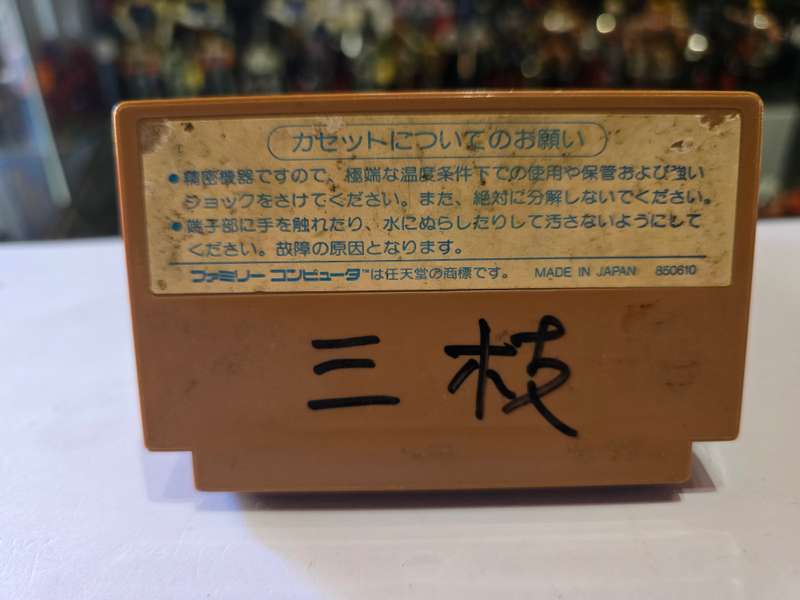 カセットについてのお願い
●精密機器ですので、極端な温度条件下での使用や保管および強い
ショックをさけてください。また、絶対に分解しないでください。
●端子部に手を触れたり、水にぬらしたりして汚さないようにして
ください。故障の原因となります。
ファミリーコンピュータ™は任天堂の商標です。 MADE IN JAPAN 850610
三枝